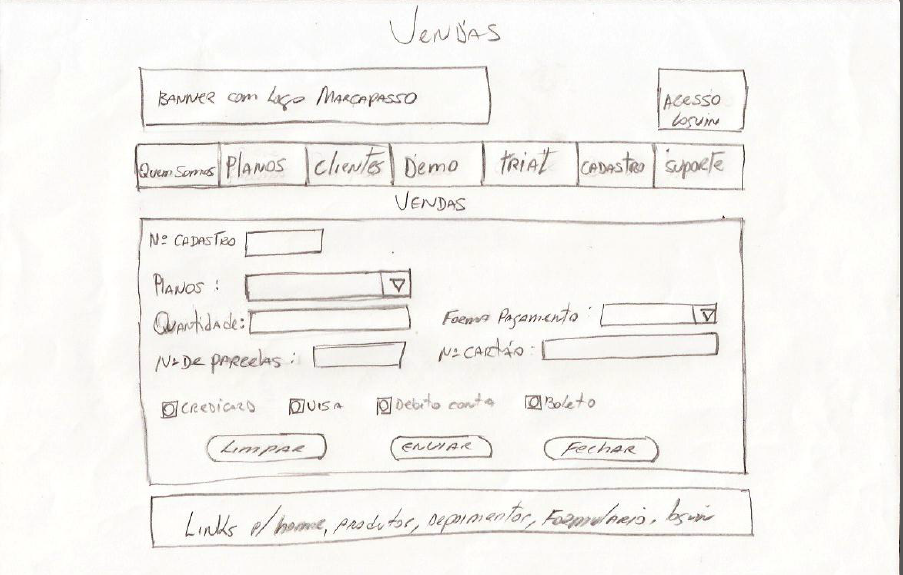 VENDAS
BANNER com Logo MARCAPASSO
ACESSO
LOGUIN
Quem Somos PLANOS Clientes Demo TRIAL CADASTRO Suporte
VENDAS
Nº CADASTRO
PLANOS :
Quantidade: Forma Pagamento :
Nº DE PARCELAS : Nº CARTÃO :
CREDICARD VISA Debito conta Boleto
LIMPAR ENVIAR FECHAR
Links p/ home, produtos, Depoimentos, Formulario, loguin